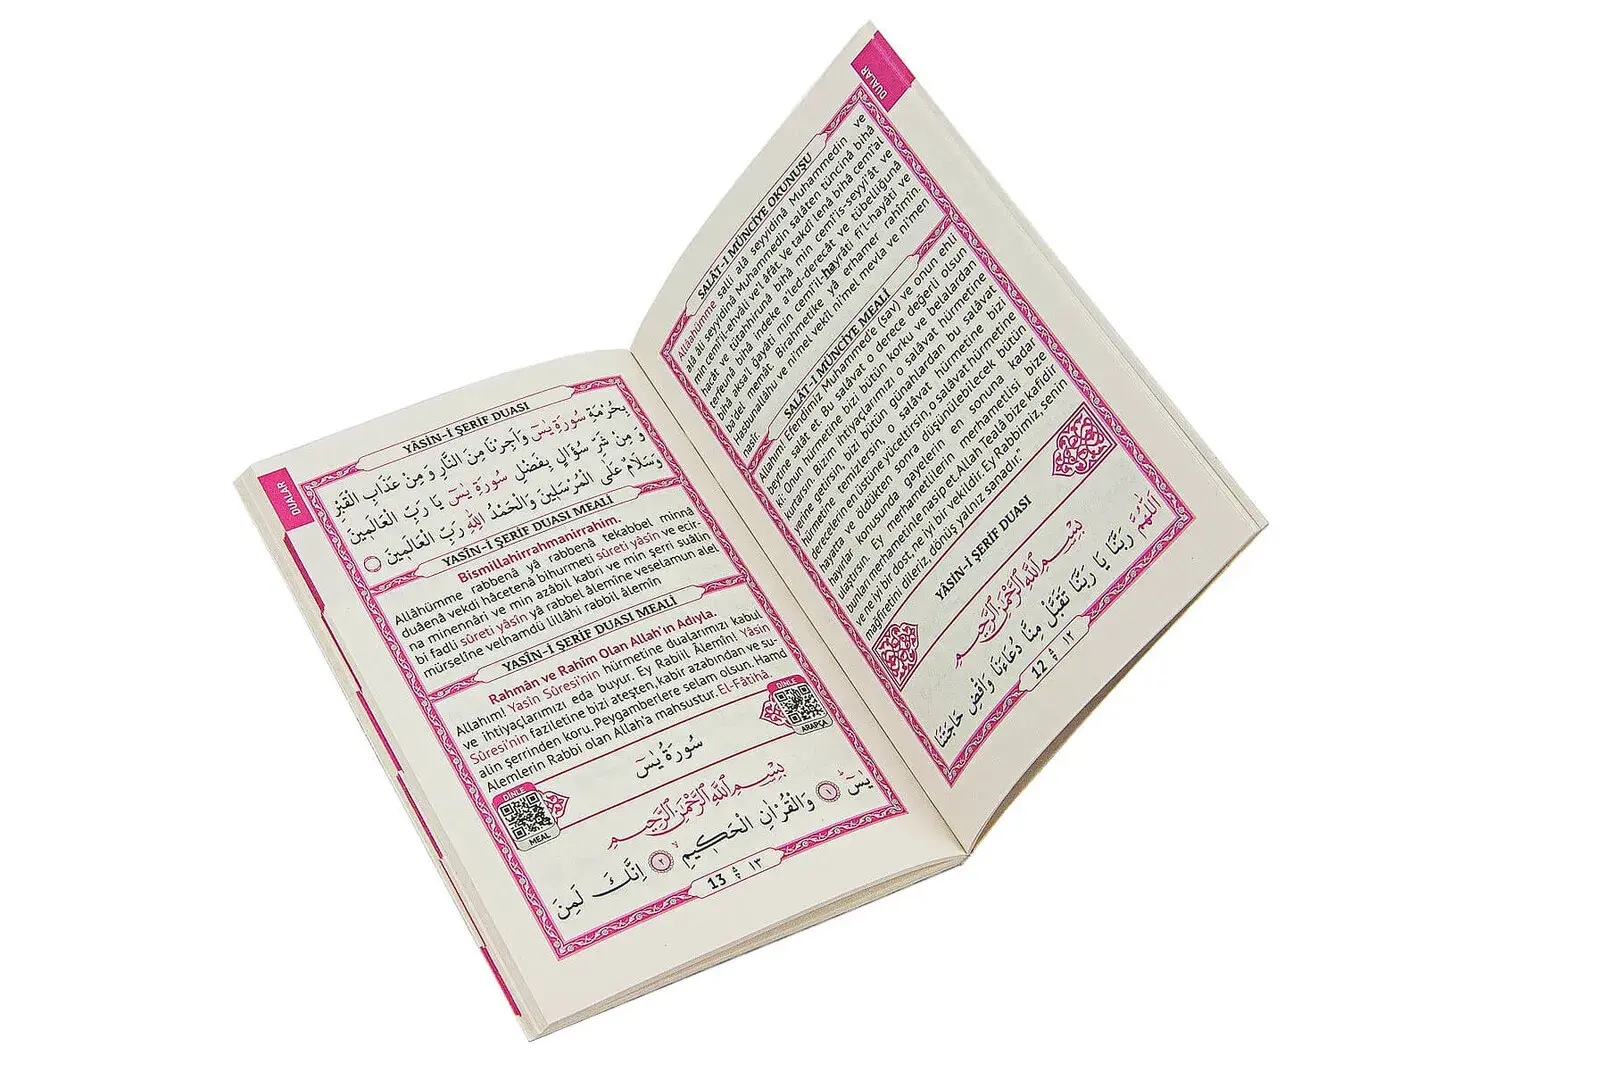 DUALAR
SALÂT-I MÜNCİYE OKUNUŞU
Allâahümme salli alâ seyyidinâ Muhammedin ve
alâ âli seyyidinâ Muhammedin salâten tüncinâ bihâ
min cemî'il-ehvâli ve'l âfât. Ve takdî lenâ bihâ cemî'al
hacât ve tütahhirunâ bihâ min cemî'is-seyyi'ât ve
terfeunâ bihâ indeke a'led-derecât ve tübelliğunâ
bihâ aksa'l ğayâti min cemî'il-hayrâti fi'l-hayâti ve
ba'del memât. Birahmetike yâ erhamer rahîmîn.
Hasbunallâhu ve ni'mel vekîl ni'mel mevla ve ni'men
nasîr.
SALÂT-I MÜNCİYE MEALİ
Allahım! Efendimiz Muhammed'e (sav) ve onun ehli
beytine salât et. Bu salâvat o derece değerli olsun
ki: Onun hürmetine bizi bütün korku ve belalardan
kurtarsın. Bizim ihtiyaçlarımızı o salâvat hürmetine
yerine getirsin, bizi bütün günahlardan bu salâvat
hürmetine temizlersin, o salâvat hürmetine bizi
derecelerin en üstüne yücettirsin, o salâvat hürmetine
hayatta ve öldükten sonra düşünülebilecek bütün
hayırlar konusunda gayelerin en sonuna kadar
ulaştırsın. Ey merhametlilerin en merhametlisi bize
bunları merhametinle nasip et. Allah Teâlâ bize kafidir
ve ne iyi bir dost, ne iyi bir vekildir. Ey Rabbimiz, senin
mağfiretini dileriz, dönüş yalnız sanadır."
YÂSÎN-İ ŞERİF DUASI
بِسْمِ اللّٰهِ الرَّحْمٰنِ الرَّحِيمِ
اَللّٰهُمَّ رَبَّنَا يَا رَبَّنَا تَقَبَّلْ مِنَّا دُعَاءَنَا وَاقْضِ حَاجَتَنَا
12 ١٢
DUALAR
YÂSÎN-İ ŞERİF DUASI
بِحُرْمَةِ سُورَةِ يٰسٓ وَاَجِرْنَا مِنَ النَّارِ وَمِنْ عَذَابِ الْقَبْرِ
وَمِنْ شَرِّ سُؤَالٍ بِفَضْلِ سُورَةِ يٰسٓ يَا رَبَّ الْعَالَمِينَ
وَسَلَامٌ عَلَى الْمُرْسَلِينَ وَالْحَمْدُ لِلّٰهِ رَبِّ الْعَالَمِينَ
YASÎN-İ ŞERİF DUASI MEALİ
Bismillahirrahmanirrahim.
Allâhümme rabbenâ yâ rabbenâ tekabbel minnâ
duâenâ vekdi hâcetenâ bihurmeti sûreti yâsîn ve ecir-
na minennâri ve min azâbil kabri ve min şerri suâlin
bi fadli sûreti yâsîn yâ rabbel âlemîne veselamun alel
mürselîne velhamdü lillâhi rabbil âlemîn
YASÎN-İ ŞERİF DUASI MEALİ
Rahmân ve Rahîm Olan Allah'ın Adıyla.
Allahım! Yasîn Sûresi'nin hürmetine dualarımızı kabul
ve ihtiyaçlarımızı eda buyur. Ey Rabiil Âlemîn! Yâsîn
Sûresi'nin faziletine bizi ateşten, kabir azabından ve su-
alin şerrinden koru. Peygamberlere selam olsun. Hamd
Alemlerin Rabbi olan Allah'a mahsustur. El-Fâtihâ.
DİNLE
ARAPÇA
سُورَةُ يٰسٓ
DİNLE
MEAL
بِسْمِ اللّٰهِ الرَّحْمٰنِ الرَّحِيمِ
يٰسٓ ١ وَالْقُرْاٰنِ الْحَكِيمِ ٢ اِنَّكَ لَمِنَ
13 ١٣